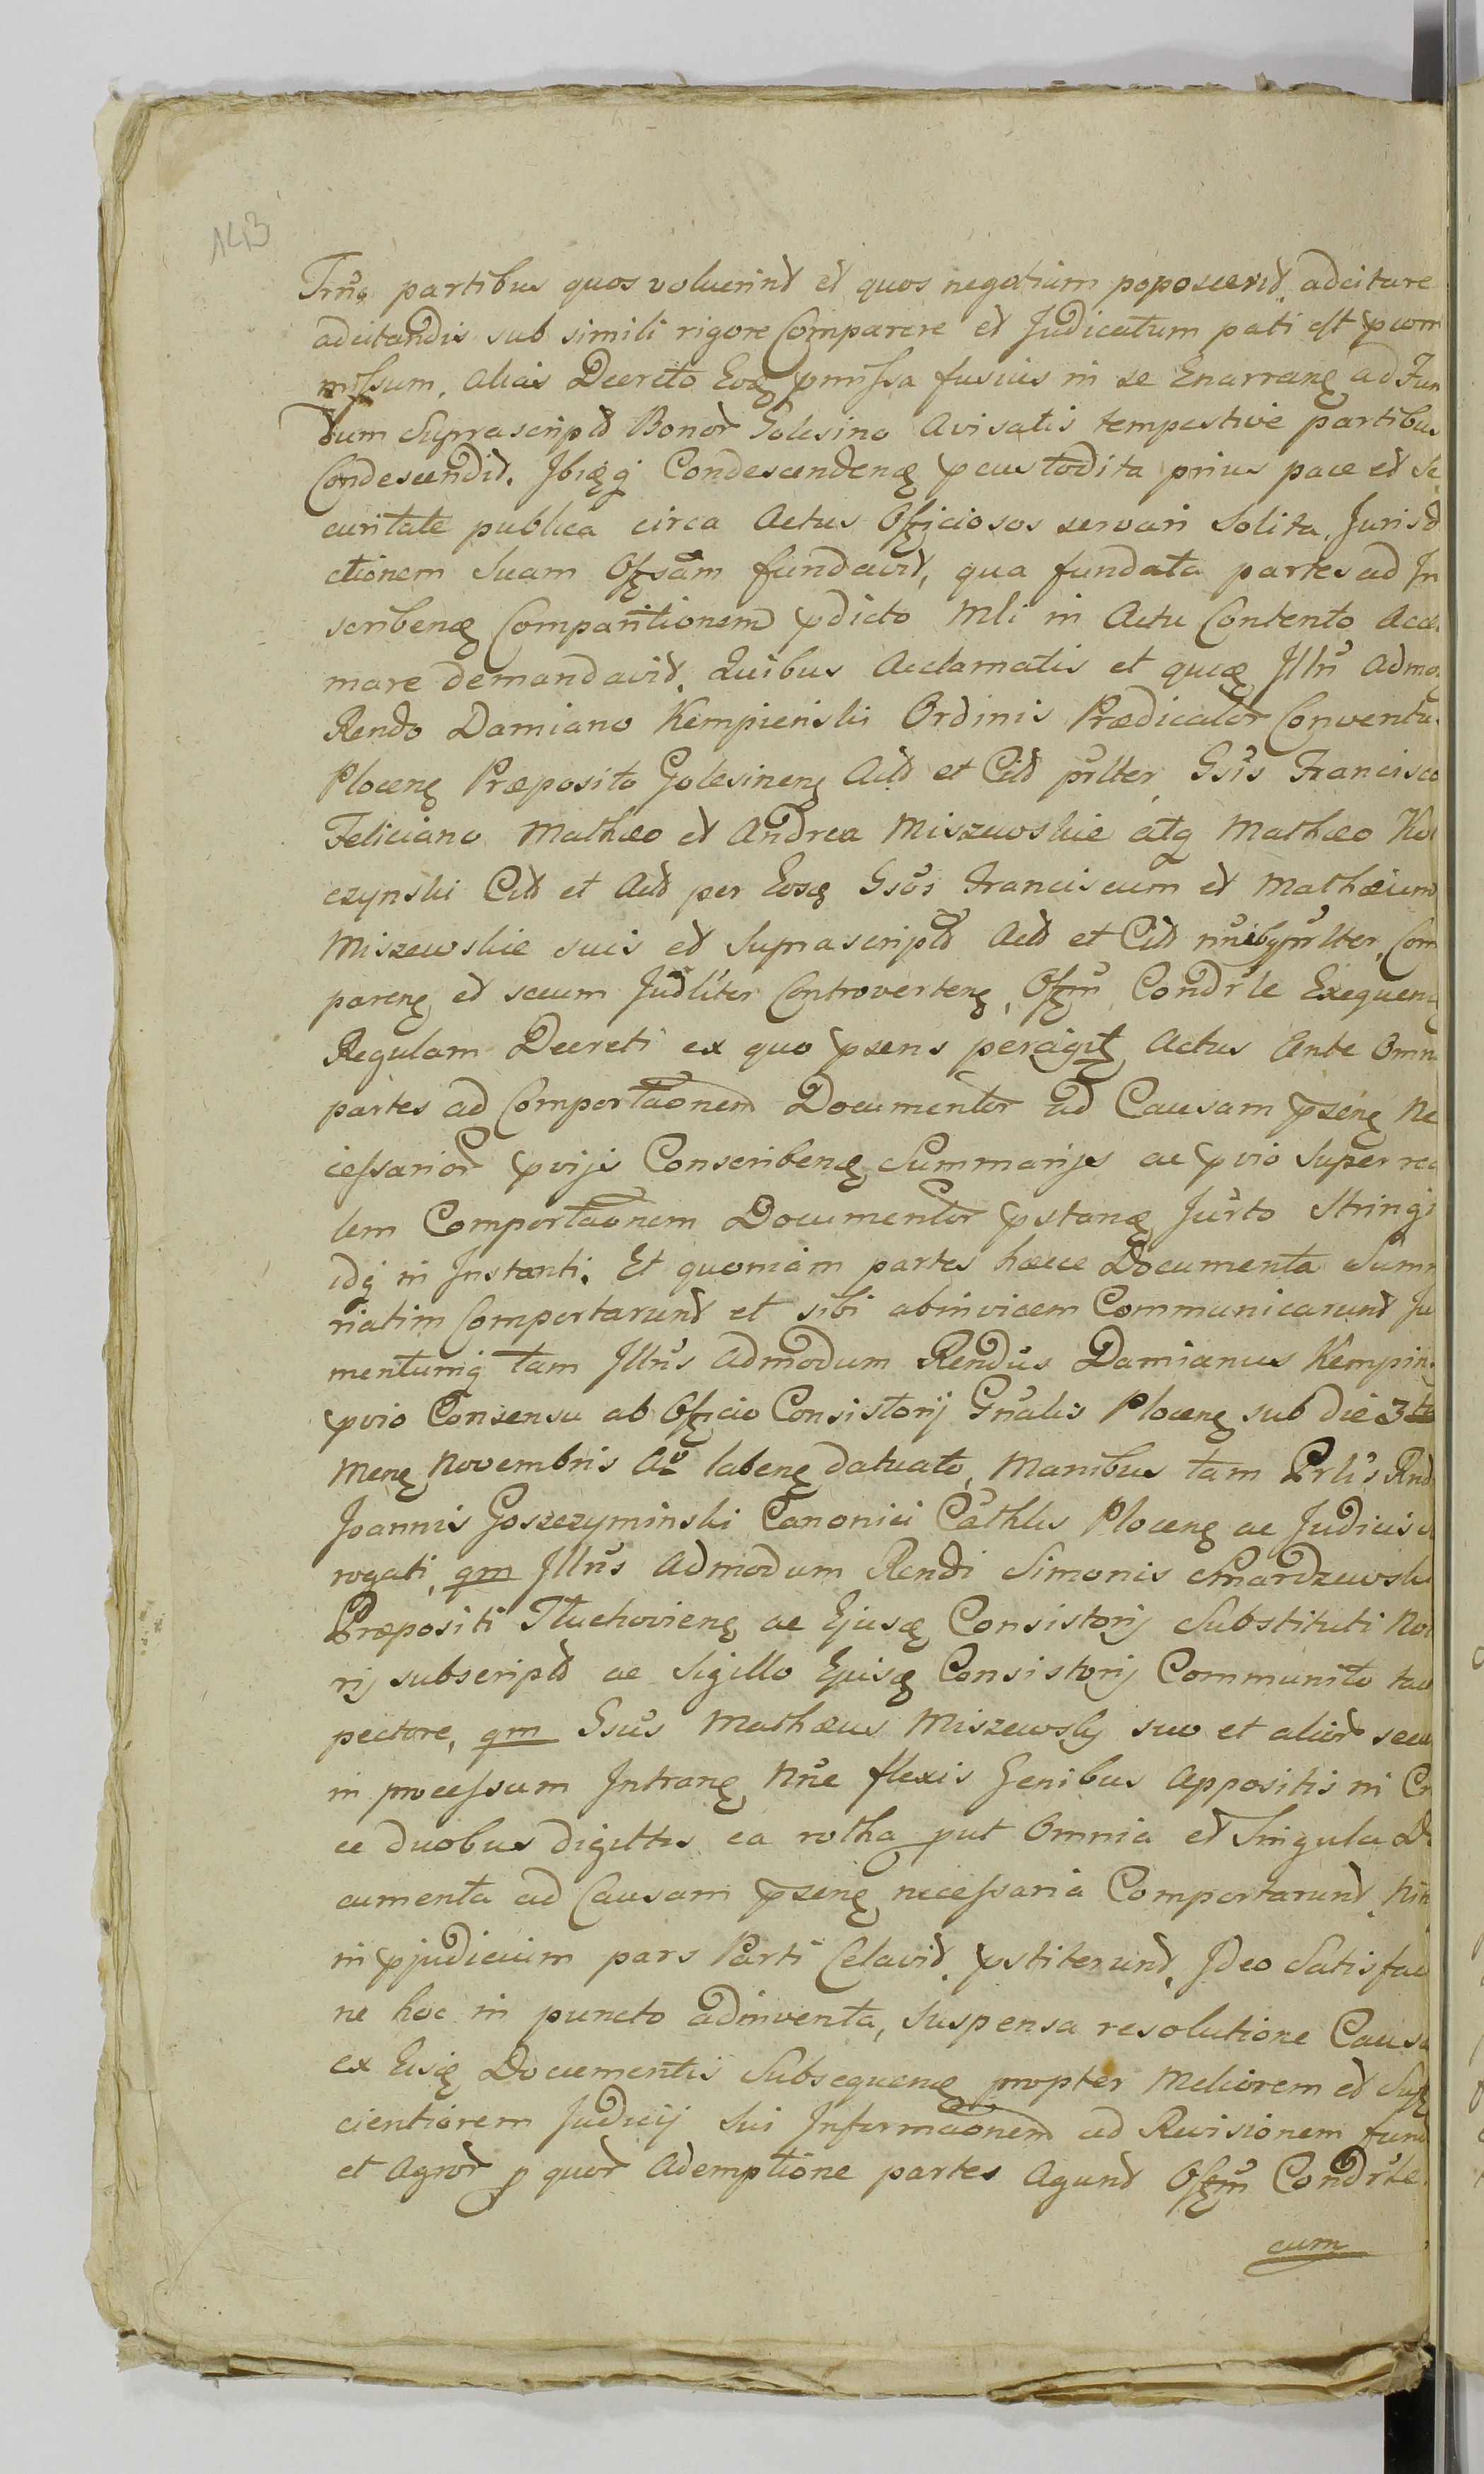 143
Trnq partibus quos voluerint et quos negotium poposcerit adcitare
adcitandis sub simili rigore Comparere et Judicatum pati est prom
missum, alias Decreto Eoq pmissa fusius in se Enarranq ad Fun
dum Suprascript Bonor Golesino Avisatis tempestive partibus
Condescendit. Ibiqq Condescendenq pcustodita prius pace et Se
curitate publica circa Actus Officiosos servari Solita, Jurisd
ctionem Suam Offsam fundavit, qua fundata partes ad In
scribenq Comparitionem pdicto Mli in Actu Contento Accla
mare demandavit, Quibus Acclamatis et quq Illri admo
Rendo Damiano Kempienski Ordinis Prædicator Conventu
Plocenq Præposito Golesinenq Actd et Citd prlter, Gsis Francisco
Feliciano Mathæo et Andrea Miszewskie atq Mathæo Ko
czynski Citd et Actd per Eosq Gsos Franciscum et Mathæum
Miszewskie suis et Suprascript Actd et Citd nnibq prlter, Com
parenq et secum Judliter Controvertenq, Offm Condrle Exequenq
Regulam Decreti ex quo psens peragit Actus Ante Omn
partes ad Comportaonem Documentor ad Causam psenq Ne
cessarior pvijs Conscribenq Summarijs ac pvio Super rea
lem Comportaonem Documentor pstanq Jurto Stringi
idq in Instanti. Et quoniam partes hæce Documenta Summ
riatim Comportarunt et sibi abinvicem Communicarunt Ju
mentumq tam Illris admodum Rendus Damianus Kempin
pvio Consensu ab Officio Consistorij Gnralis Plocenq sub die 3tia
Menq Novembris Ao labenq datuato, Manibus tam Prlis Rnd
Joannis Goszczyminski Canonici Cathlis Plocenq ac Judicis
rogati, qm Illris admodum Rendi Simonis Smardzewski
Præpositi Tłuchovienq ac Ejusq Consistorij Substituti No
rij subscript ac Sigillo Ejusq Consistorij Communito tac
pectore, qm Gsus Mathæus Miszewsky suo et alior secu
in processum Intranq Nne flexis Genibus Appositis in Cru
ce duobus digittis ea rotha put Omnia et Singula Do
cumenta ad Causam psenq necessaria Comportarunt, Nih
in pjudicium pars Parti Celavit, pstiterunt, Ideo Satisfac
ne hoc in puncto adinventa, Suspensa resolutione Causa
ex Eisq Documentis Subsequenq propter Meliorem et Suffi
cientiorem Judicij Sui Informaonem ad Revisionem fund
et Agror p quor Ademptione partes Agunt Offm Condrle
cum